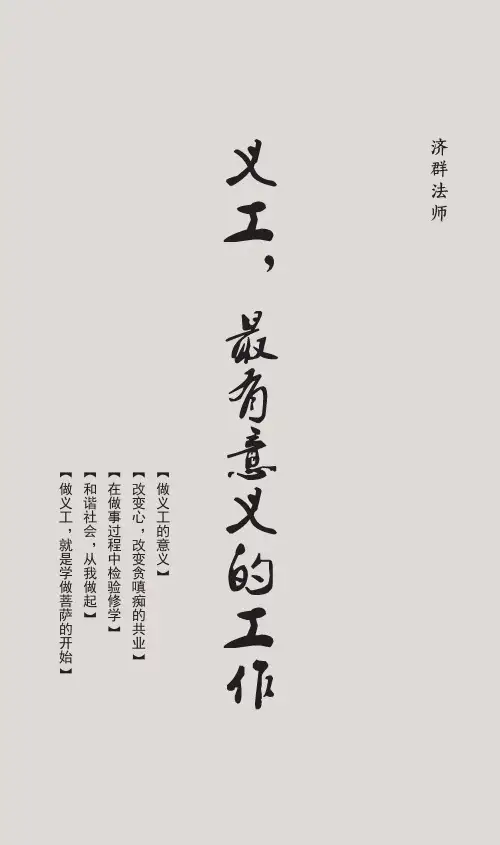 济群法师
义工，最有意义的工作
【做义工的意义】
【改变心，改变贪嗔痴的共业】
【在做事过程中检验修学】
【和谐社会，从我做起】
【做义工，就是学做菩萨的开始】